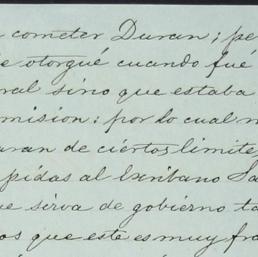 cometer Duran; pe
e otorgué cuando fué
ral sino que estaba
mision: por lo cual n
aran de ciertos limite
pidas al Escribano Sa
ue sirva de gobierno ta
os que este es muy fra